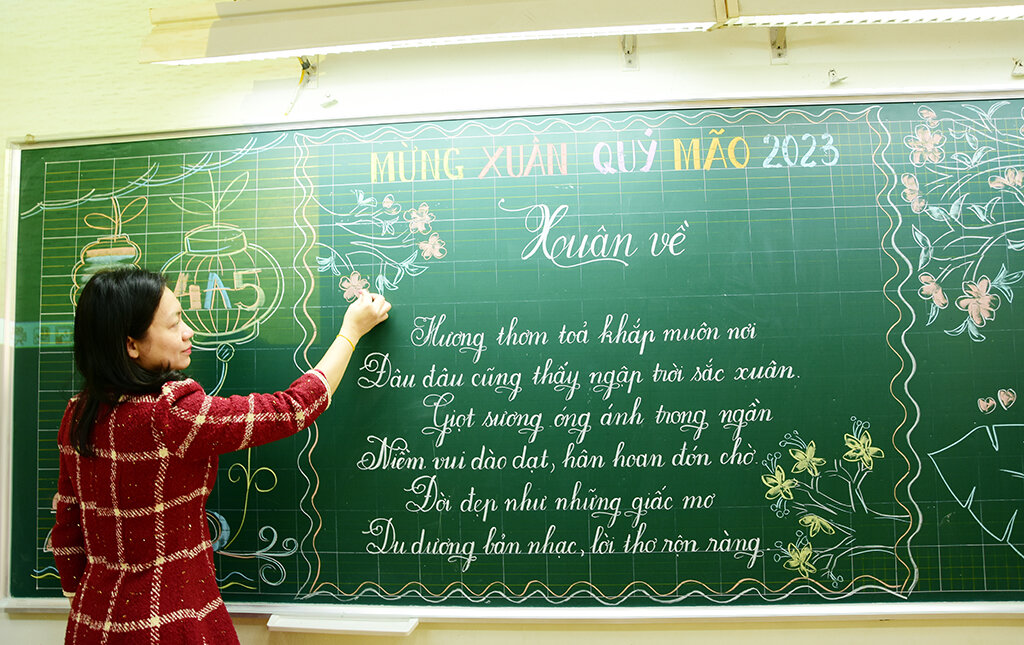 MỪNG XUÂN QUÝ MÃO 2023
Xuân về
4A5
Hương thơm toả khắp muôn nơi
Đâu đâu cũng thấy ngập trời sắc xuân.
Giọt sương óng ánh trong ngần
Niềm vui dào dạt, hân hoan đón chờ.
Đời đẹp như những giấc mơ
Du dương bản nhạc, lời thơ rộn ràng.